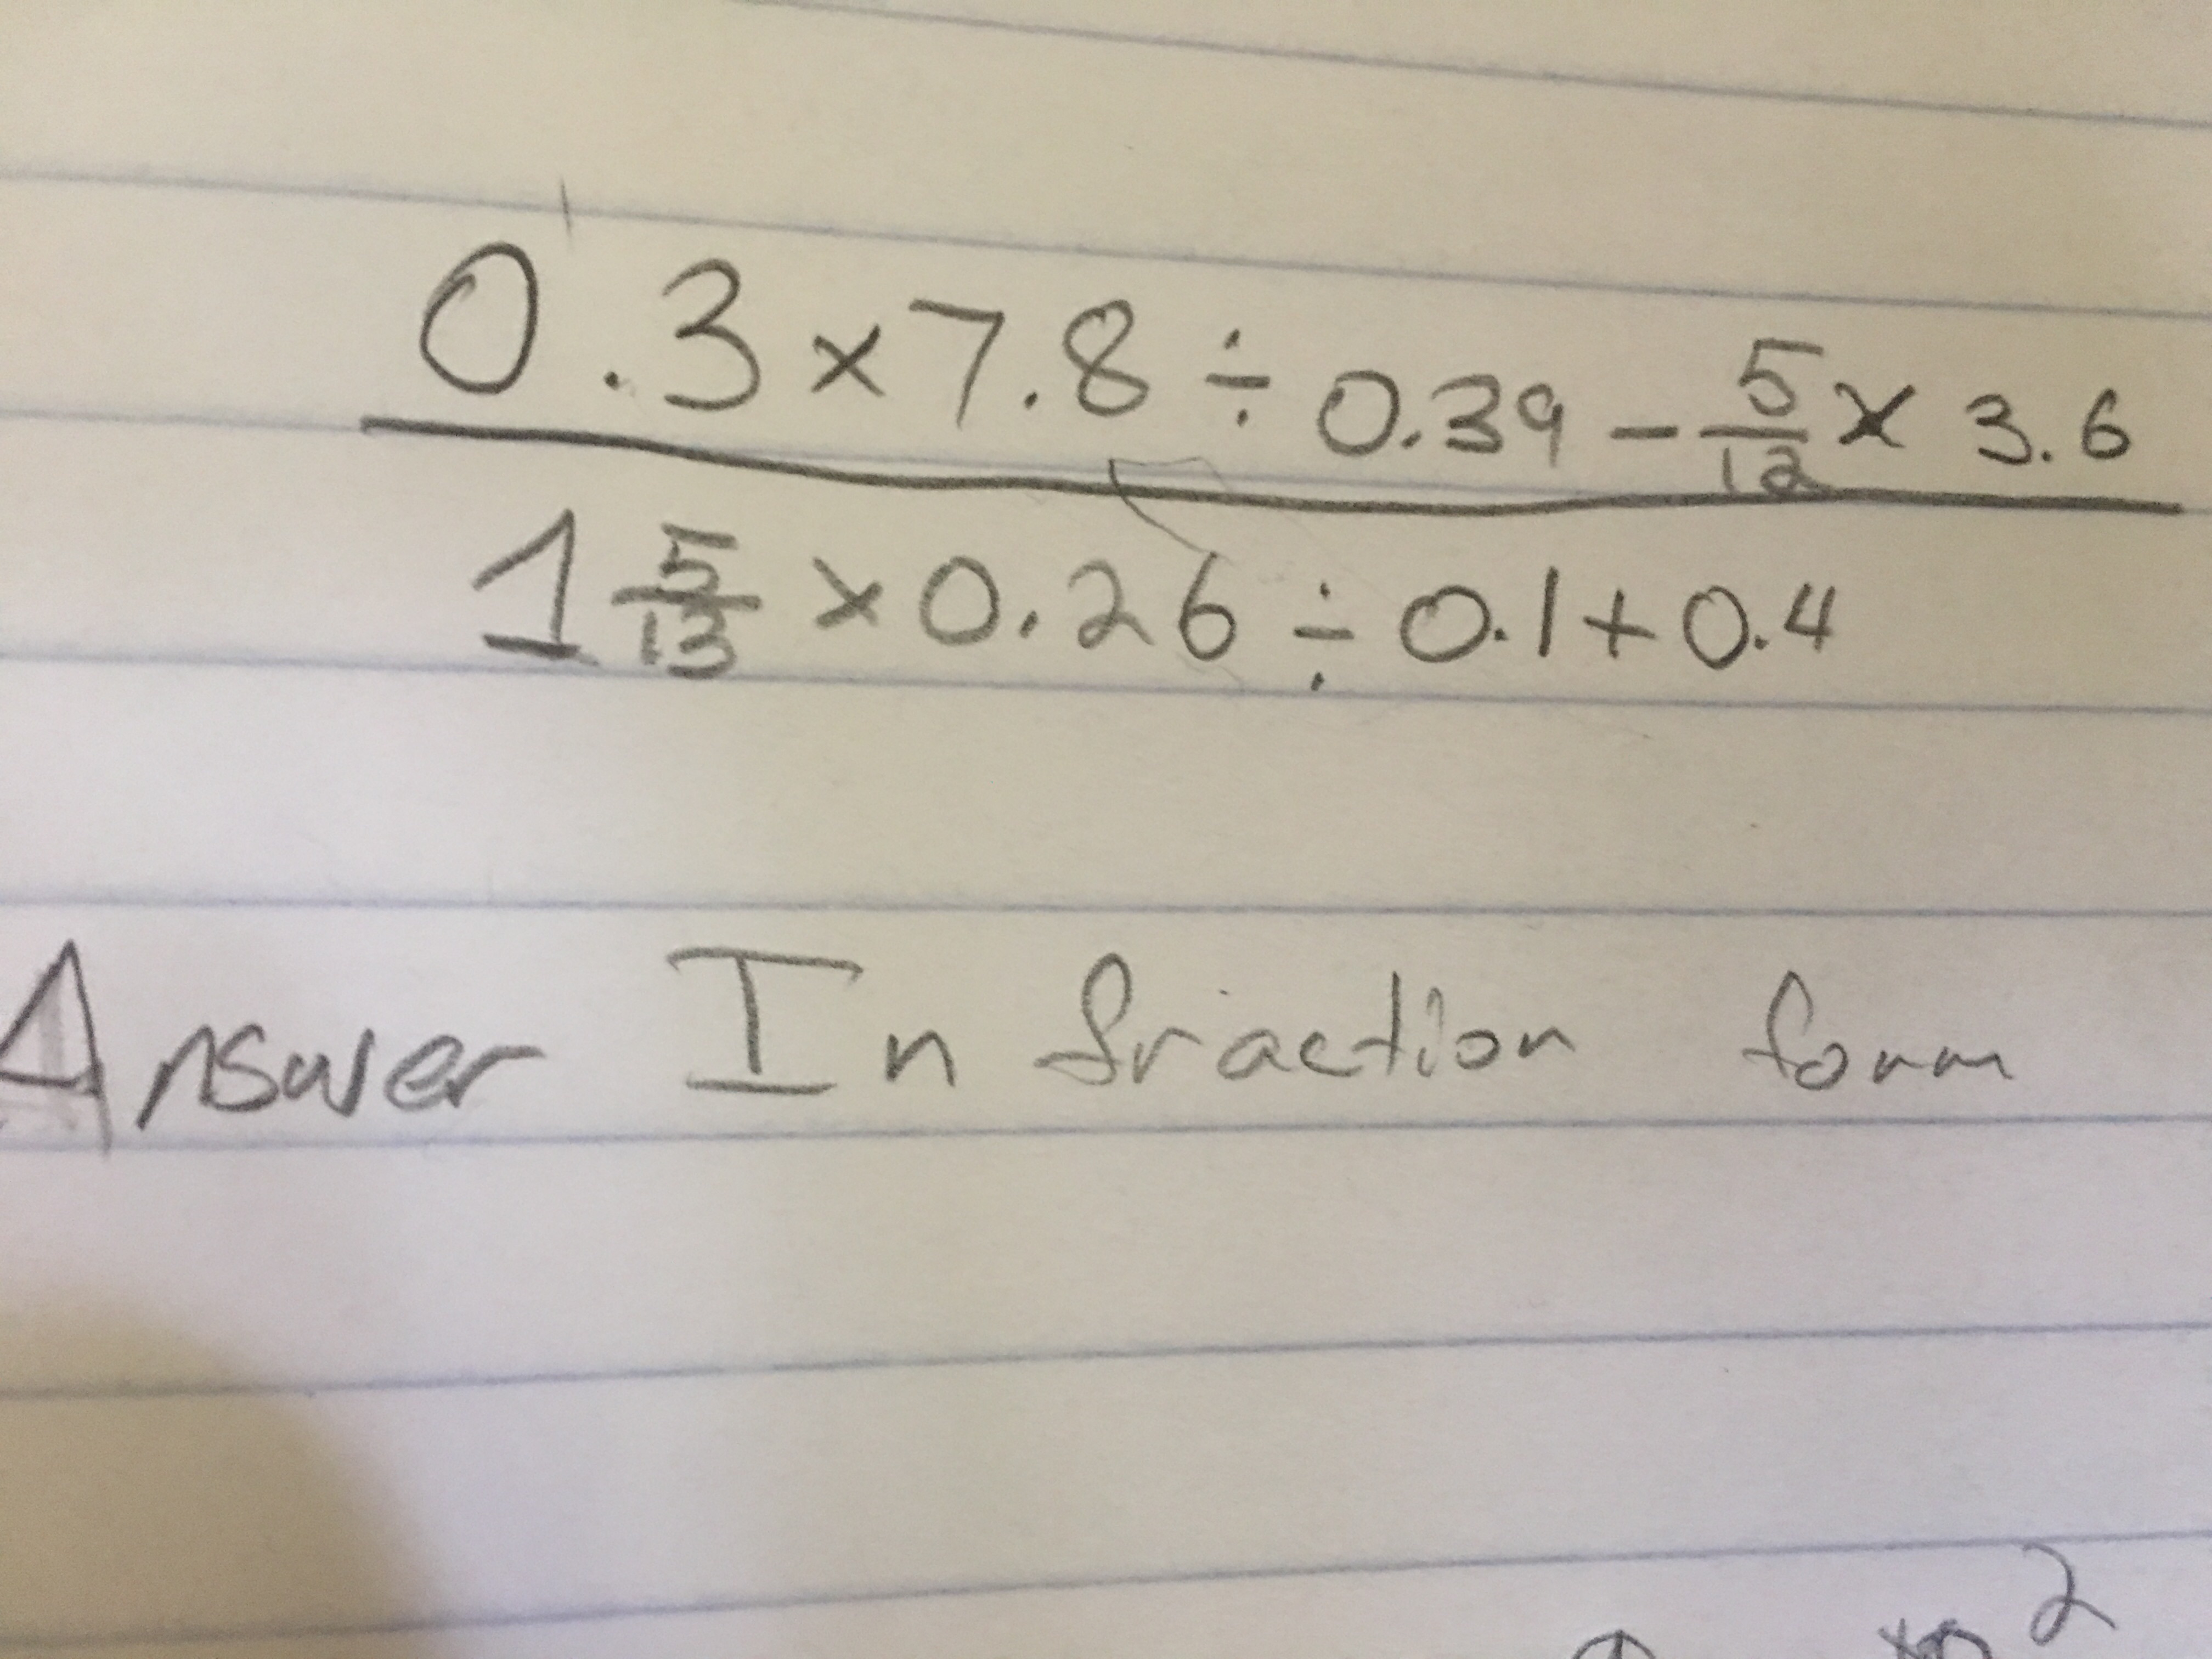 0.3 × 7.8 ÷ 0.39 - 5/12 × 3.6
1 5/13 × 0.26 ÷ 0.1 + 0.4
Answer In fraction form
2